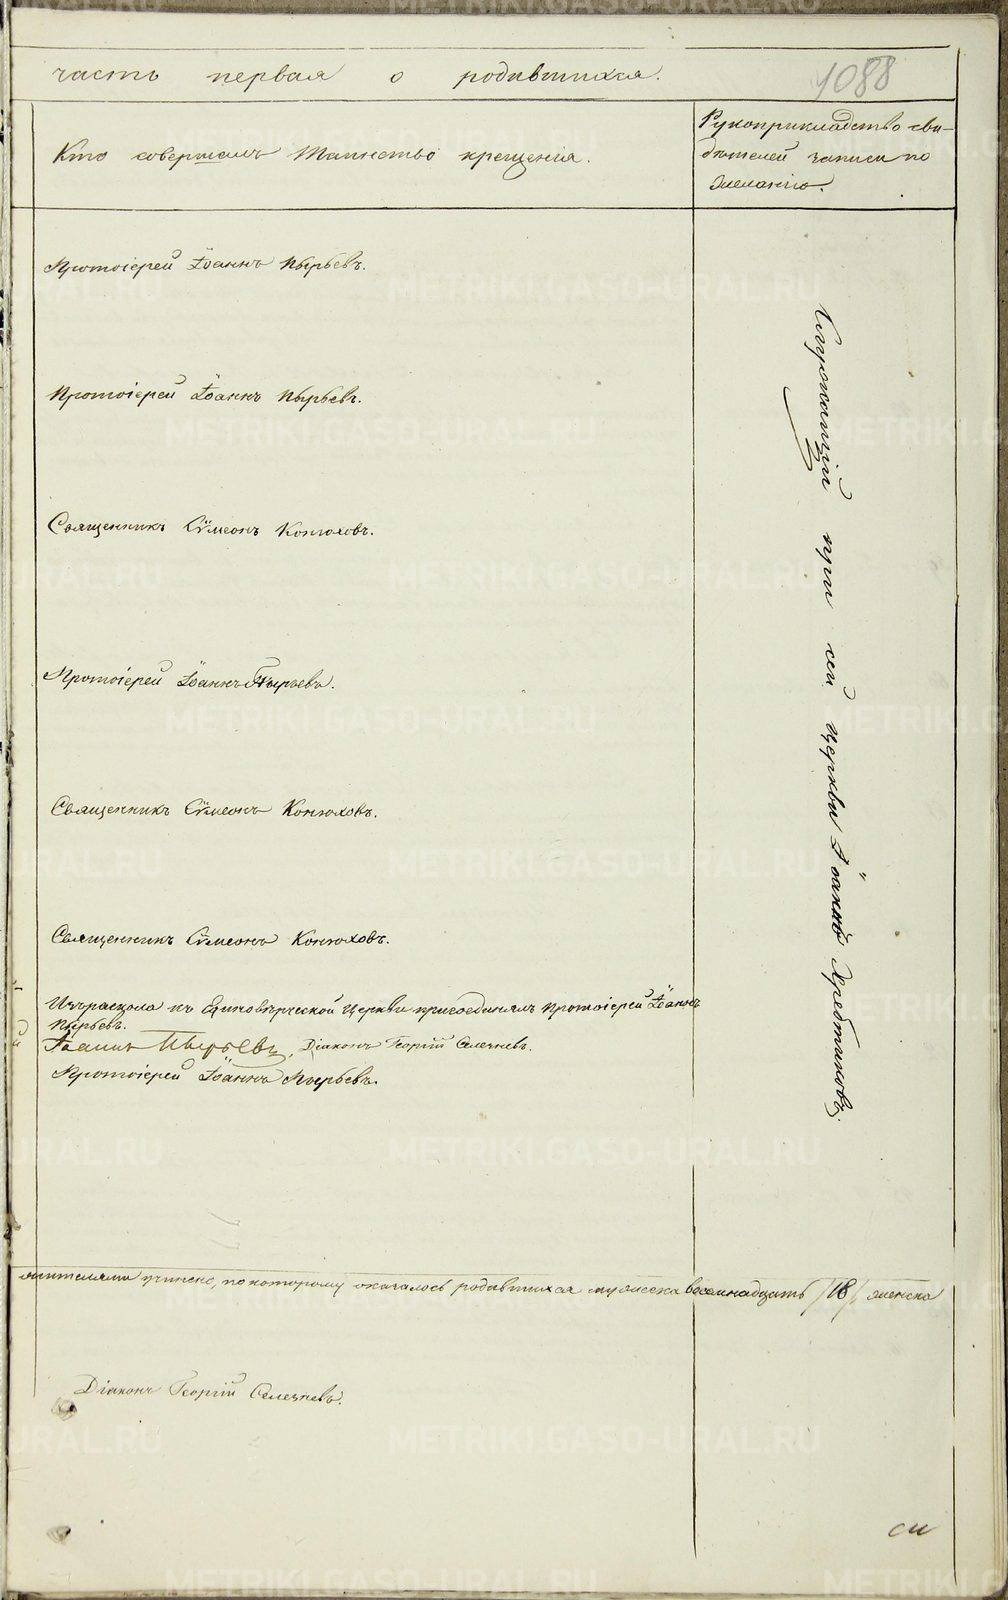 часть первая о родившихся.
1088
Кто совершалъ Таинство крещенія.
Рукоприкладство сви-
дѣтелей записи по
желанію.
Протоіерей Іоаннъ Пырьевъ.
Протоіерей Іоаннъ Пырьевъ.
Священникъ Сѵмеонъ Конюховъ.
Протоіерей Іоаннъ Пырьевъ.
Священникъ Сѵмеонъ Конюховъ.
Священникъ Сѵмеонъ Конюховъ.
Изъ раскола къ Единовѣрческой Церкви присоединялъ Протоіерей Іоаннъ
Пырьевъ.
Іоаннъ Пырьевъ, Діаконъ Георгій Селезневъ.
Протоіерей Іоаннъ Пырьевъ.
при сей церкви Іоаннъ
жителями учинено, по которому оказалось родившихся мужеска восемнадцать /18/, женска
Діаконъ Георгій Селезневъ.
си
METRIKI.GASO-URAL.RU